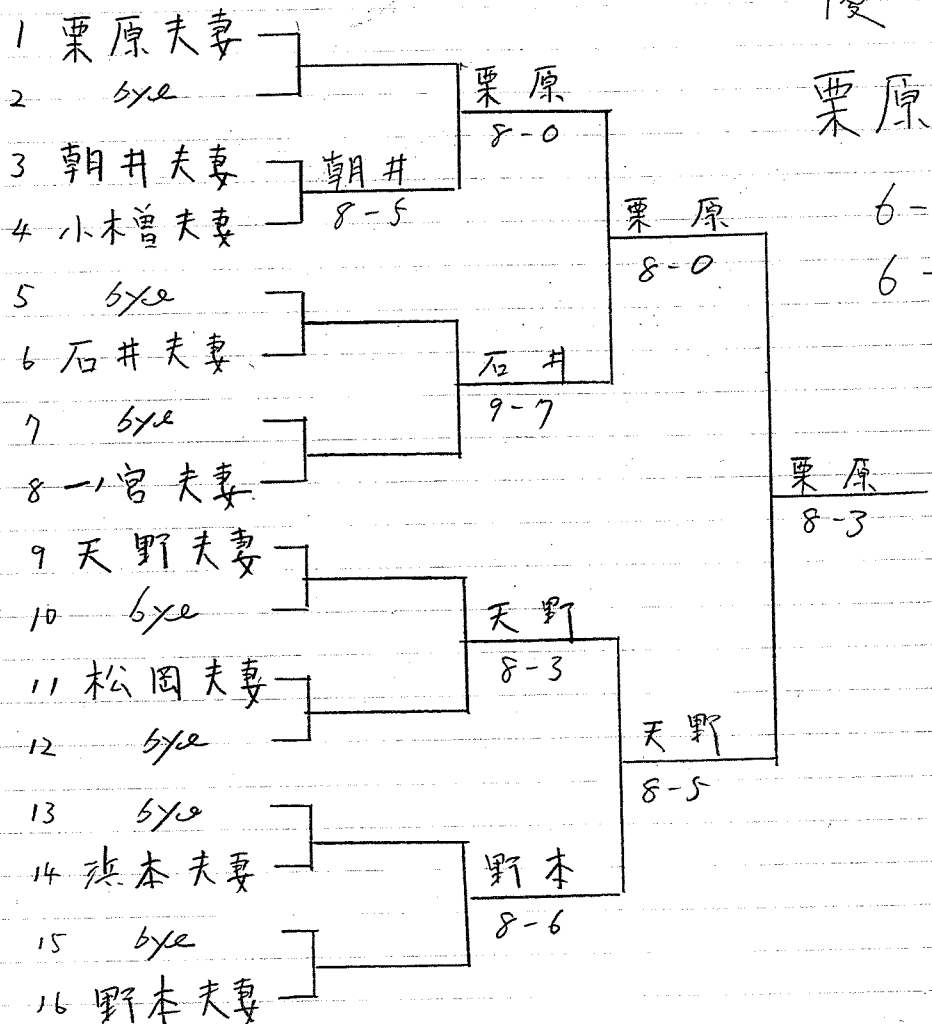 1 栗原夫妻
2 bye
3 朝井夫妻
4 小木曽夫妻
5 bye
6 石井夫妻
7 bye
8 一ノ宮夫妻
9 天野夫妻
10 bye
11 松岡夫妻
12 bye
13 bye
14 浜本夫妻
15 bye
16 野本夫妻
朝井
8-5
栗原
8-0
石井
9-7
天野
8-3
野本
8-6
栗原
8-0
天野
8-5
栗原
8-3
栗原
6-
6-